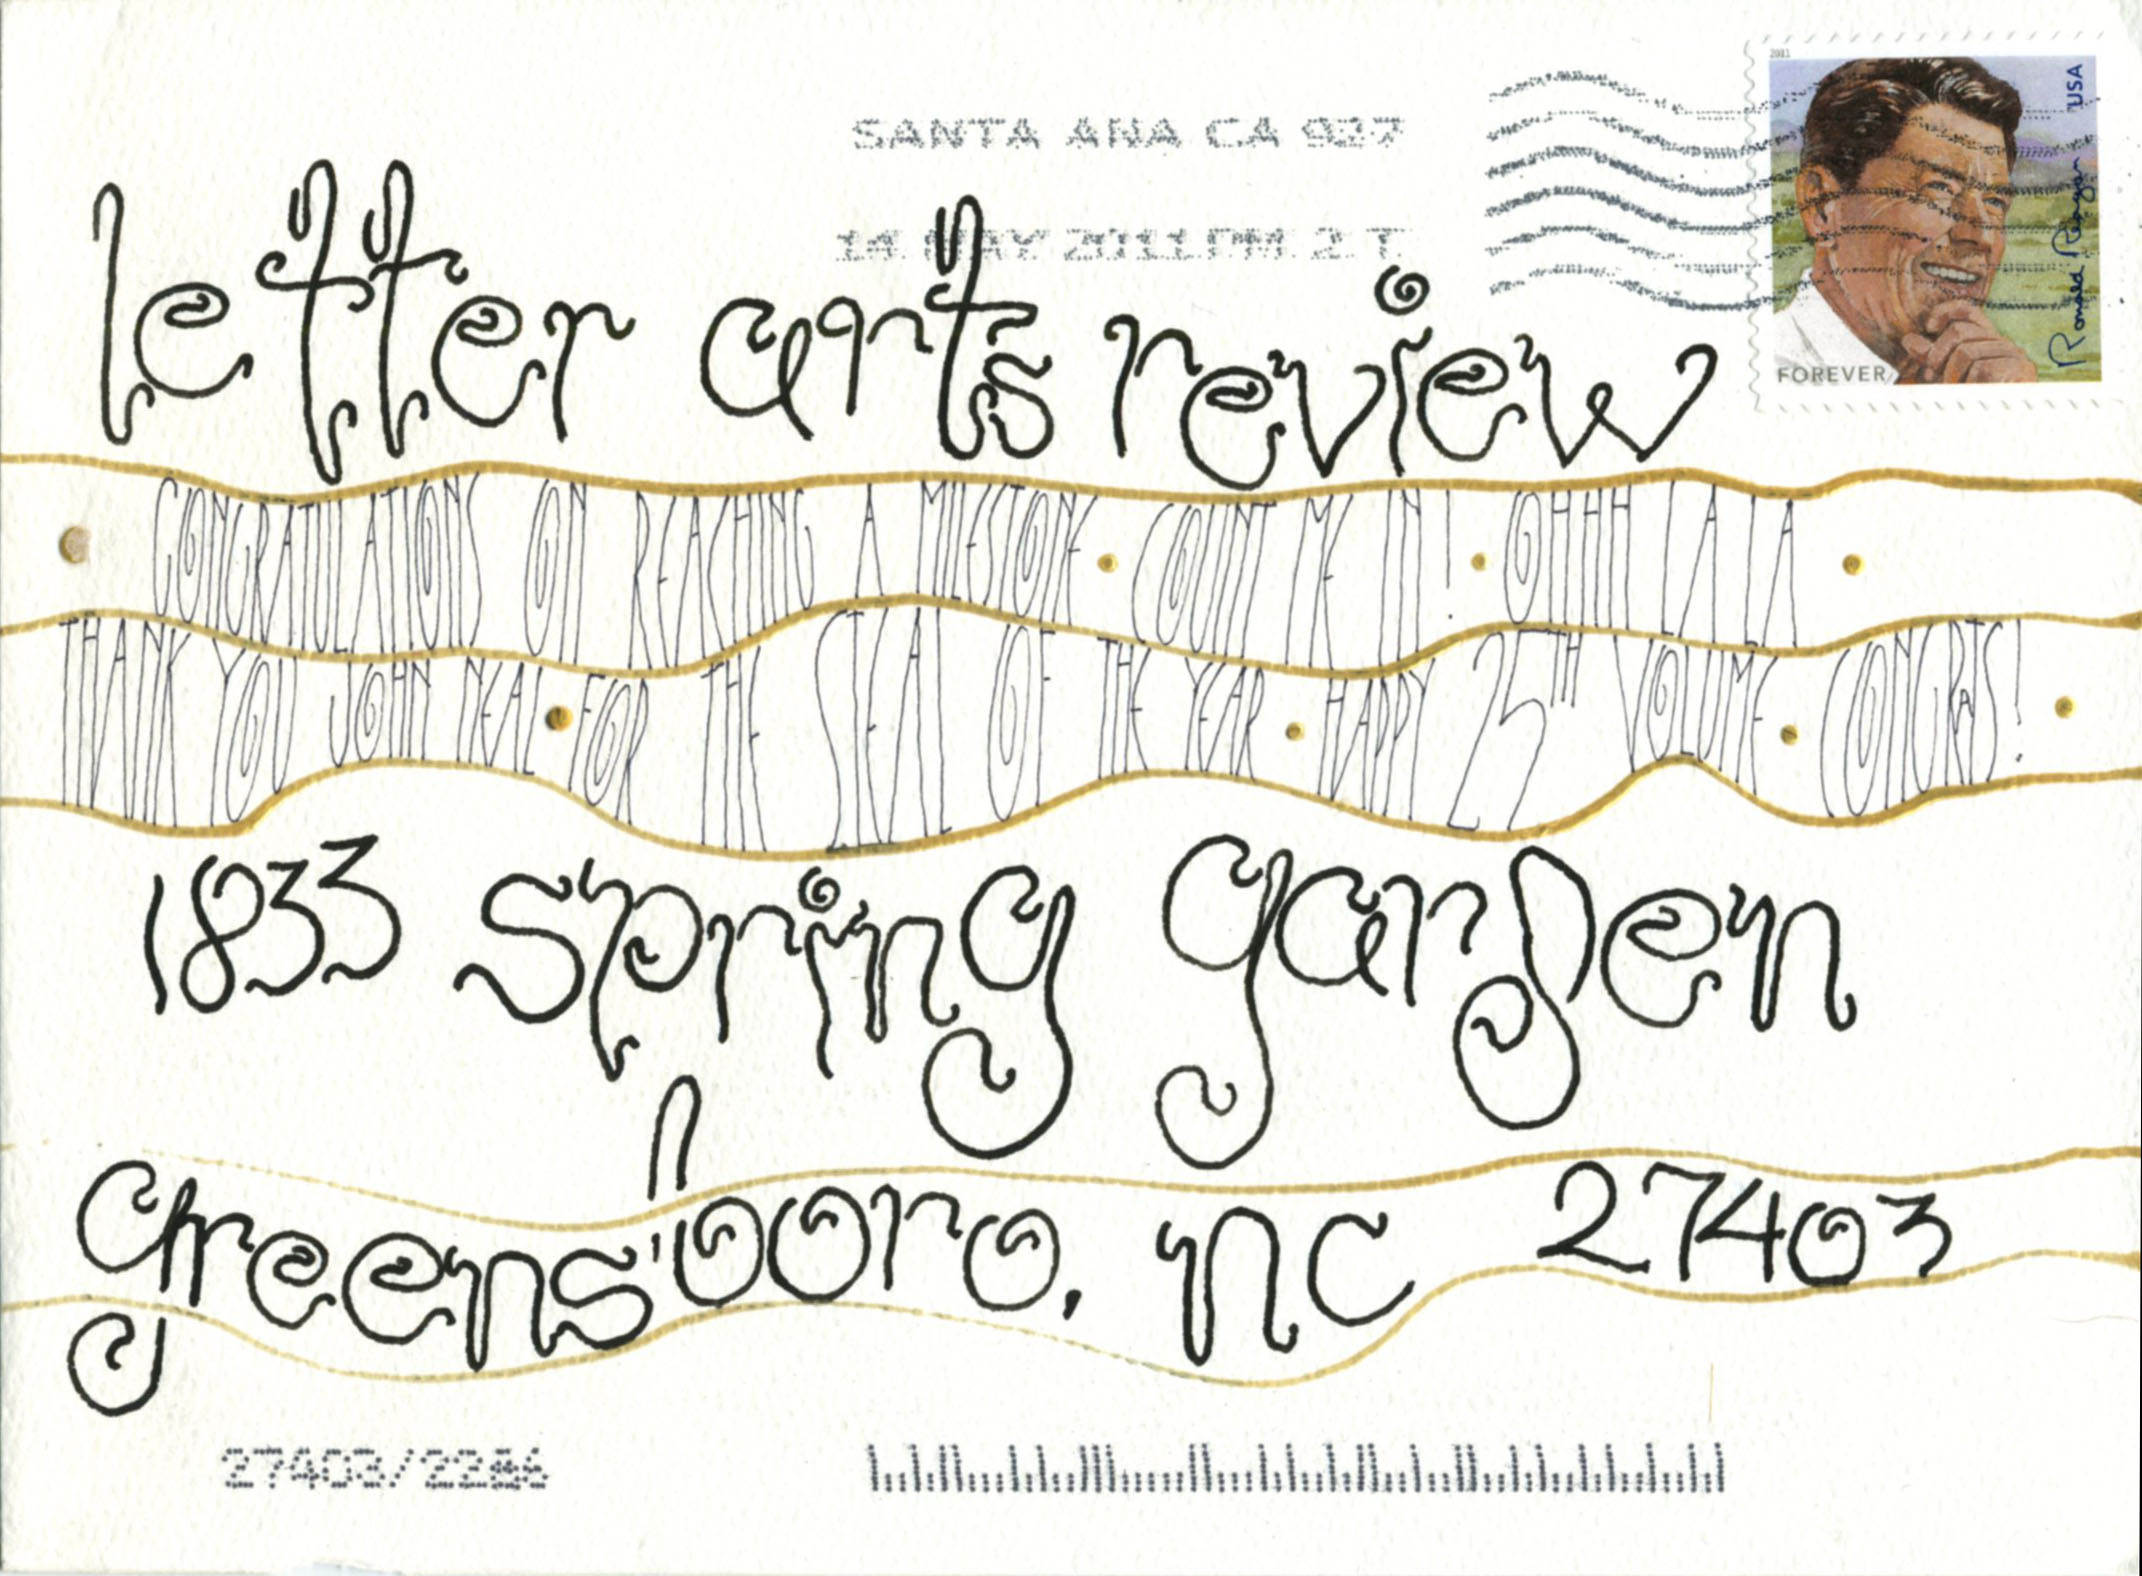 2011
USA
Ronald Reagan
FOREVER
SANTA ANA CA 927
14 MAY 2011 PM 2 T
letter arts review
CONGRATULATIONS ON REACHING A MILESTONE • COUNT ME IN! • OHHH LA LA •
THANK YOU JOHN NEAL • FOR THE STEAL OF THE YEAR • HAPPY 25TH VOLUME • CONGRATS! •
1833 spring garden
greensboro, nc 27403
27403/2286